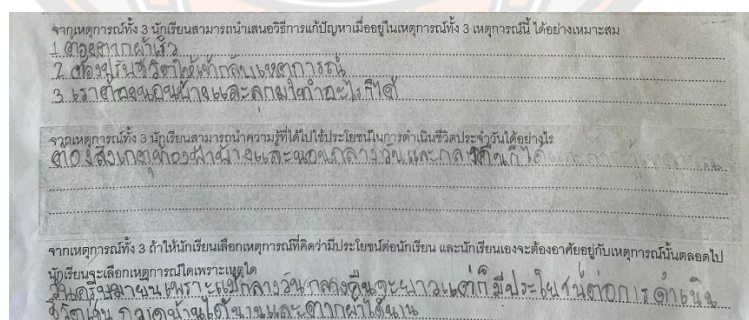 จากเหตุการณ์ทั้ง 3 นักเรียนสามารถนำเสนอวิธีการแก้ปัญหาเมื่ออยู่ในเหตุการณ์ทั้ง 3 เหตุการณ์นี้ ได้อย่างเหมาะสม
1. ต้องตากผ้าเร็ว
2. ต้องปรับชีวิตให้เข้ากลับเหตุการณ์
3. เราต้องนอนบ้างและลุกมาทำอะไรก็ได้
จากเหตุการณ์ทั้ง 3 นักเรียนสามารถนำความรู้ที่ได้ไปใช้ประโยชน์ในการดำเนินชีวิตประจำวันได้อย่างไร
ต้องสังเกตุท้องฟ้าบ้างและนอนกลางวันและกลางคืนก็ได้
จากเหตุการณ์ทั้ง 3 ถ้าให้นักเรียนเลือกเหตุการณ์ที่คิดว่ามีประโยชน์ต่อนักเรียน และนักเรียนเองจะต้องอาศัยอยู่กับเหตุการณ์นั้นตลอดไป
นักเรียนจะเลือกเหตุการณ์ใดเพราะเหตุใด
วันครีษมายัน เพราะแม้กลางวันกลางคืนจะยาวแต่ก็มีประโยชน์ต่อการดำเนิน
ชีวิตเช่น กวาดบ้านได้นานและตากผ้าได้นาน